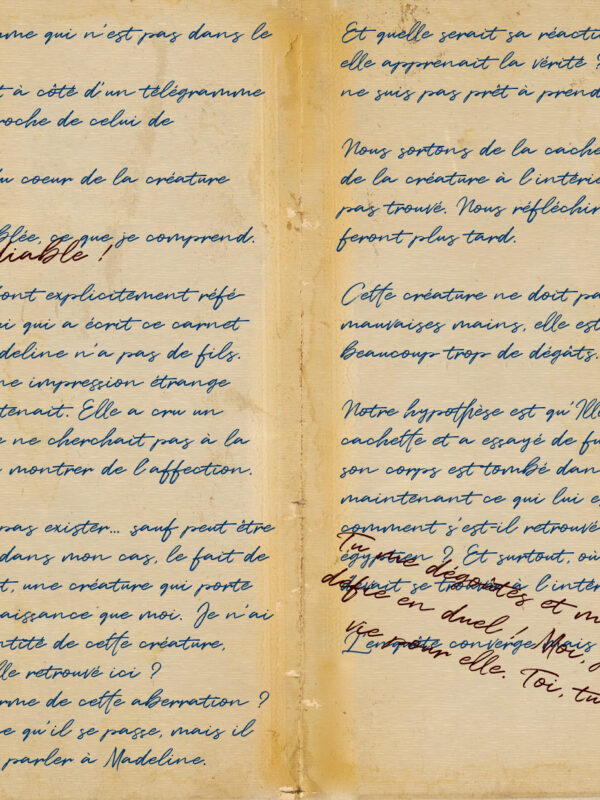 mme qui n'est pas dans le
t à côté d'un télégramme
roche de celui de
du coeur de la créature
blée, ce que je comprend.
diable !
font explicitement réfé
ui qui a écrit ce carnet
deline n'a pas de fils.
ne impression étrange
tenait. Elle a cru un
e ne cherchait pas à la
montrer de l'affection.
pas exister... sauf peut être
dans mon cas, le fait de
t, une créature qui porte
naissance que moi. Je n'ai
entité de cette créature,
elle retrouvé ici ?
erme de cette aberration ?
ce qu'il se passe, mais il
parler à Madeline.
Et quelle serait sa réacti
elle apprenait la vérité ?
ne suis pas prêt à prend
Nous sortons de la cache
de la créature à l'intérie
pas trouvé. Nous réfléchir
feront plus tard.
Cette créature ne doit pa
mauvaises mains, elle est
Beaucoup trop de dégâts.
Notre hypothèse est qu'Ill
cachette et a essayé de fu
son corps est tombé dan
maintenant ce qui lui e
comment s'est-il retrouvé
égyptien ? Et surtout, où
devait se trouver à l'intér
L'enquête converge mais
Tu me dégoûtes et m
défie en duel ! Moi, j
vie pour elle. Toi, tu